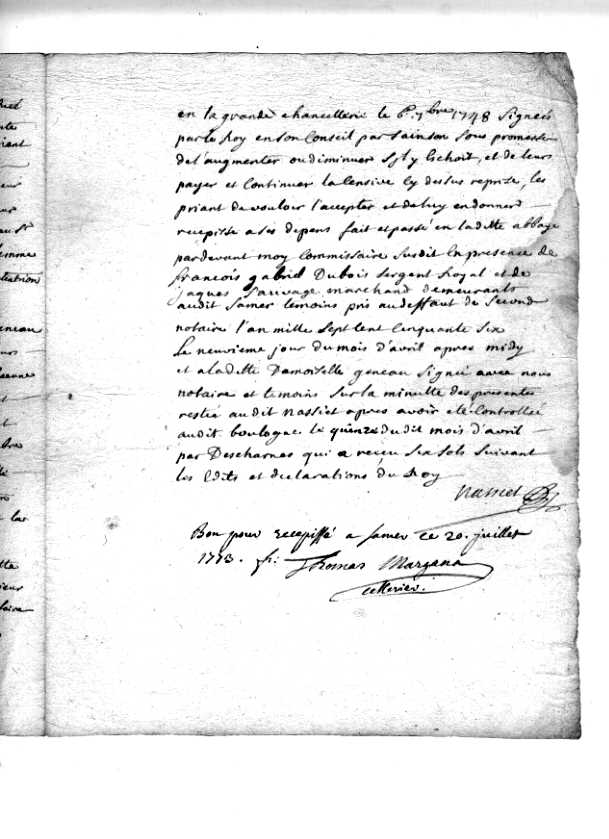 en la grande chancellerie le 6. 7bre 1748 Signeés
par le Roy en son Conseil par Sainson sous promesse
de l'augmenter ou diminuer Sy ly Echoit, et de leurs
payer et Continuer la Censive Cy dessus reprise, les
priant de vouloir l'accepter et de luy en donner
recepisse a ses depens fait et passé en laditte abbaye
pardevant moy Commissaire Susdit En presence de
francois gabriel Dubois Sergent Royal et de
Jaques Sauvage marchand demeurants
audit Samer temoins pris au deffaut de Second
notaire l'an mille Sept Cent Cinquante Six
Le neuvieme jour du mois d'avril apres midy
et a laditte Damoiselle geneau Signé avec nous
notaire et temoins Sur la minutte des presentes
restée audit nassiet apres avoir eté Controllée
audit boulogne le quinze dudit mois d'avril
par Descharnes qui a receu Six Sols Suivant
les Edits et declarations du Roy
nassiet
Bon pour recepissé a Samer ce 20. juillet
1773. fr. Thomas Margana
cellerier.
ant
eur
emme
eneau
et